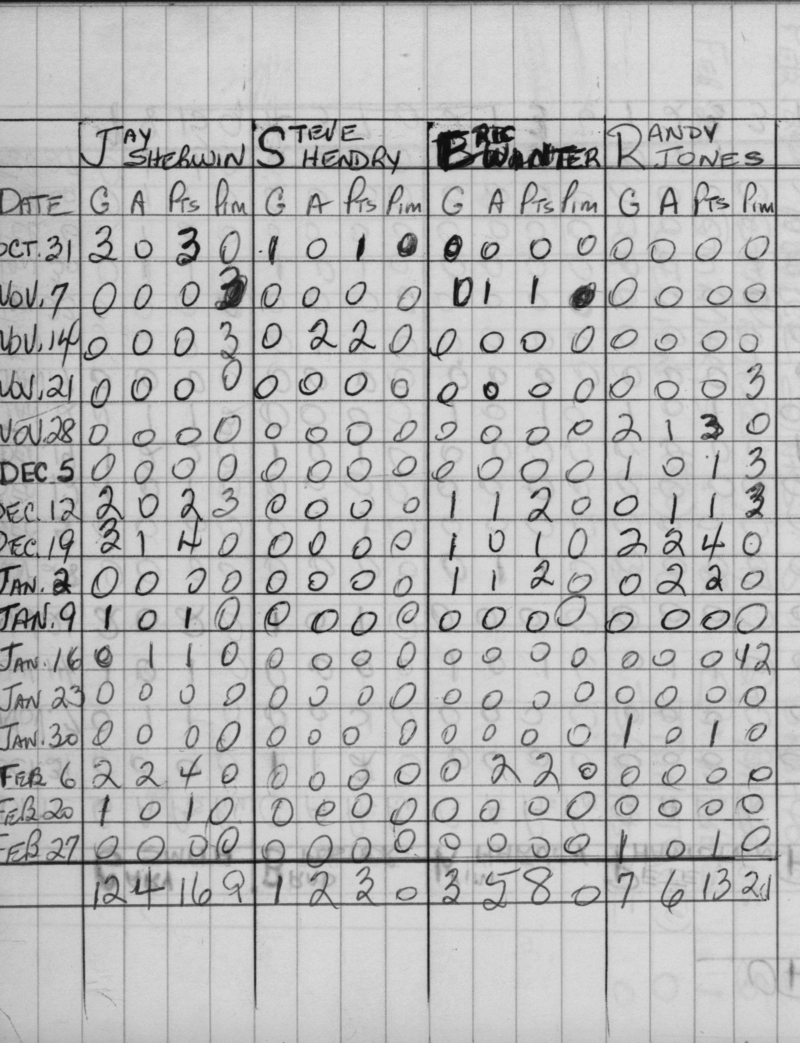 JAY SHERWIN STEVE HENDRY ERIC WANTER RANDY JONES
DATE G A Pts Pim G A Pts Pim G A Pts Pim G A Pts Pim
OCT. 31 3 0 3 0 1 0 1 0 0 0 0 0 0 0 0 0
NOV. 7 0 0 0 3 0 0 0 0 0 1 1 0 0 0 0
NOV. 14 0 0 0 3 0 2 2 0 0 0 0 0 0 0 0 0
NOV. 21 0 0 0 0 0 0 0 0 0 0 0 0 0 0 0 3
NOV. 28 0 0 0 0 0 0 0 0 0 0 0 0 2 1 3 0
DEC 5 0 0 0 0 0 0 0 0 0 0 0 0 1 0 1 3
DEC. 12 2 0 2 3 0 0 0 0 1 1 2 0 0 1 1 3
DEC. 19 3 1 4 0 0 0 0 0 1 0 1 0 2 2 4 0
JAN. 2 0 0 0 0 0 0 0 0 1 1 2 0 0 2 2 0
JAN. 9 1 0 1 0 0 0 0 0 0 0 0 0 0 0 0 0
JAN. 16 0 1 1 0 0 0 0 0 0 0 0 0 0 0 0 42
JAN 23 0 0 0 0 0 0 0 0 0 0 0 0 0 0 0 0
JAN. 30 0 0 0 0 0 0 0 0 0 0 0 0 1 0 1 0
FEB 6 2 2 4 0 0 0 0 0 0 2 2 0 0 0 0 0
FEB 20 1 0 1 0 0 0 0 0 0 0 0 0 0 0 0 0
FEB 27 0 0 0 0 0 0 0 0 0 0 0 0 1 0 1 0
12 4 16 9 1 2 3 0 3 5 8 0 7 6 13 21